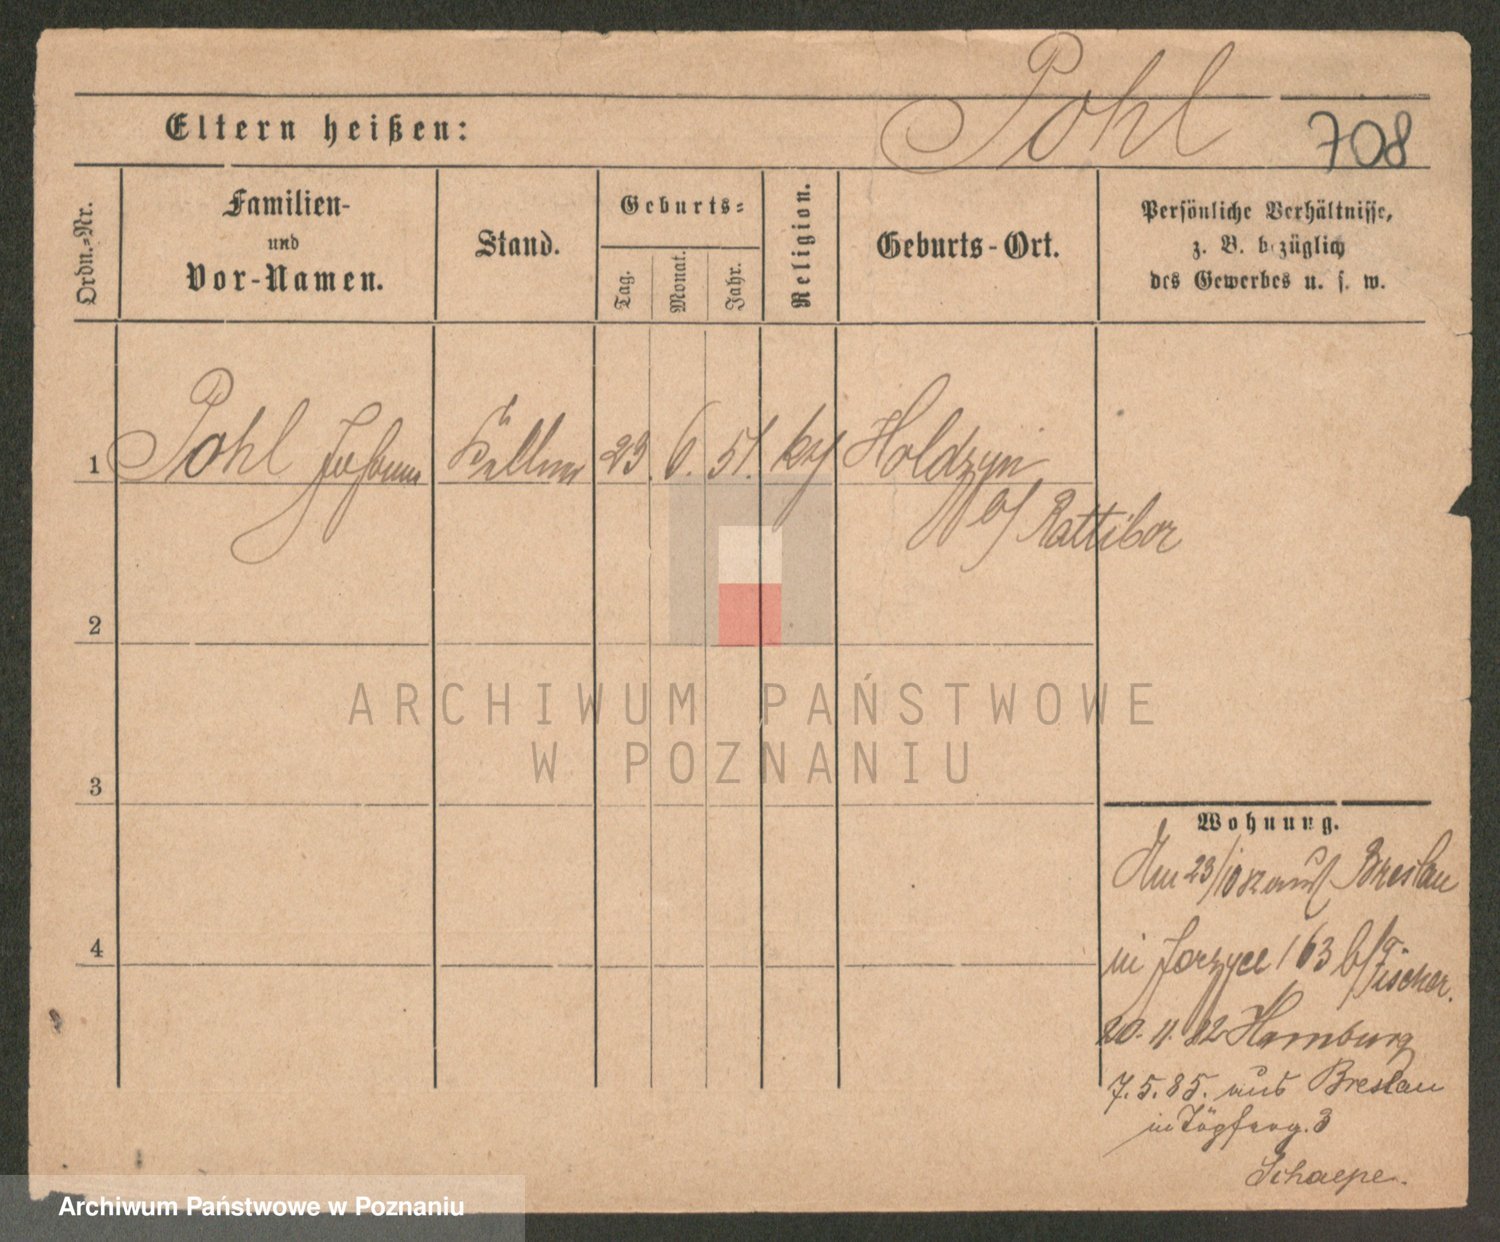 Pohl
Eltern heißen:
708
Ordn.-Nr.
Familien-
und
Vor-Namen.
Stand.
Geburts-
Tag.
Monat.
Jahr.
Religion.
Geburts-Ort.
Persönliche Verhältnisse,
z. B. bezüglich
des Gewerbes u. s. w.
1 Pohl Johann Kellner 23. 6. 51. Holdzyn
b/ Rattibor
2
3
4
ARCHIWUM PAŃSTWOWE
W POZNANIU
Wohnung.
Am 23/10 82 aus Breslau
in Jerzyce 163 b/ Fischer.
20. 11. 82 Hamburg
7. 5. 85. aus Breslau
in 3
Schaepe.
Archiwum Państwowe w Poznaniu